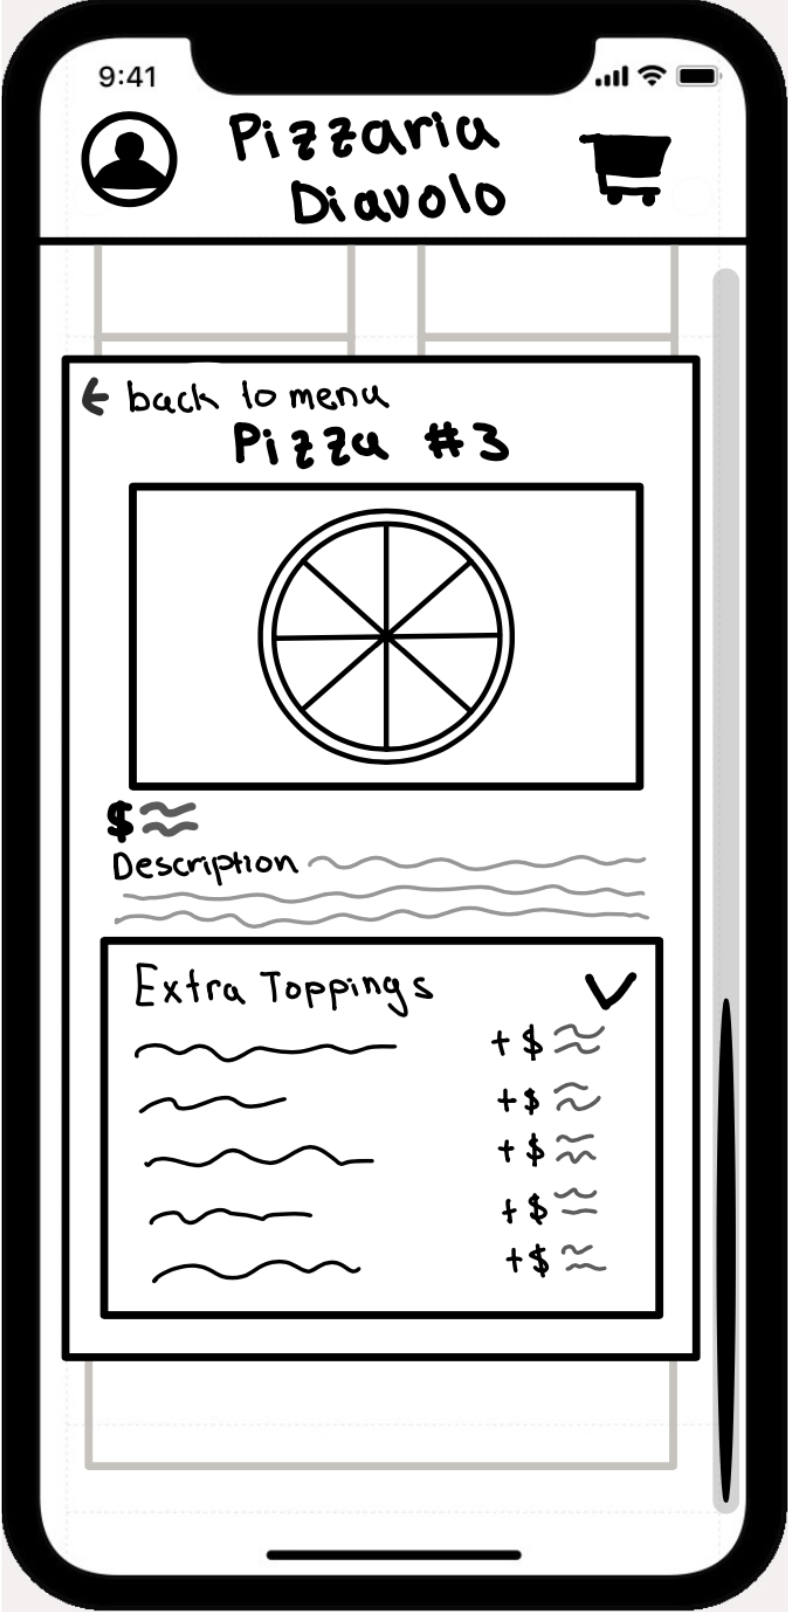 9:41
Pizzaria
Diavolo
← back to menu
Pizza #3
$
Description
Extra Toppings
+ $
+ $
+ $
+ $
+ $